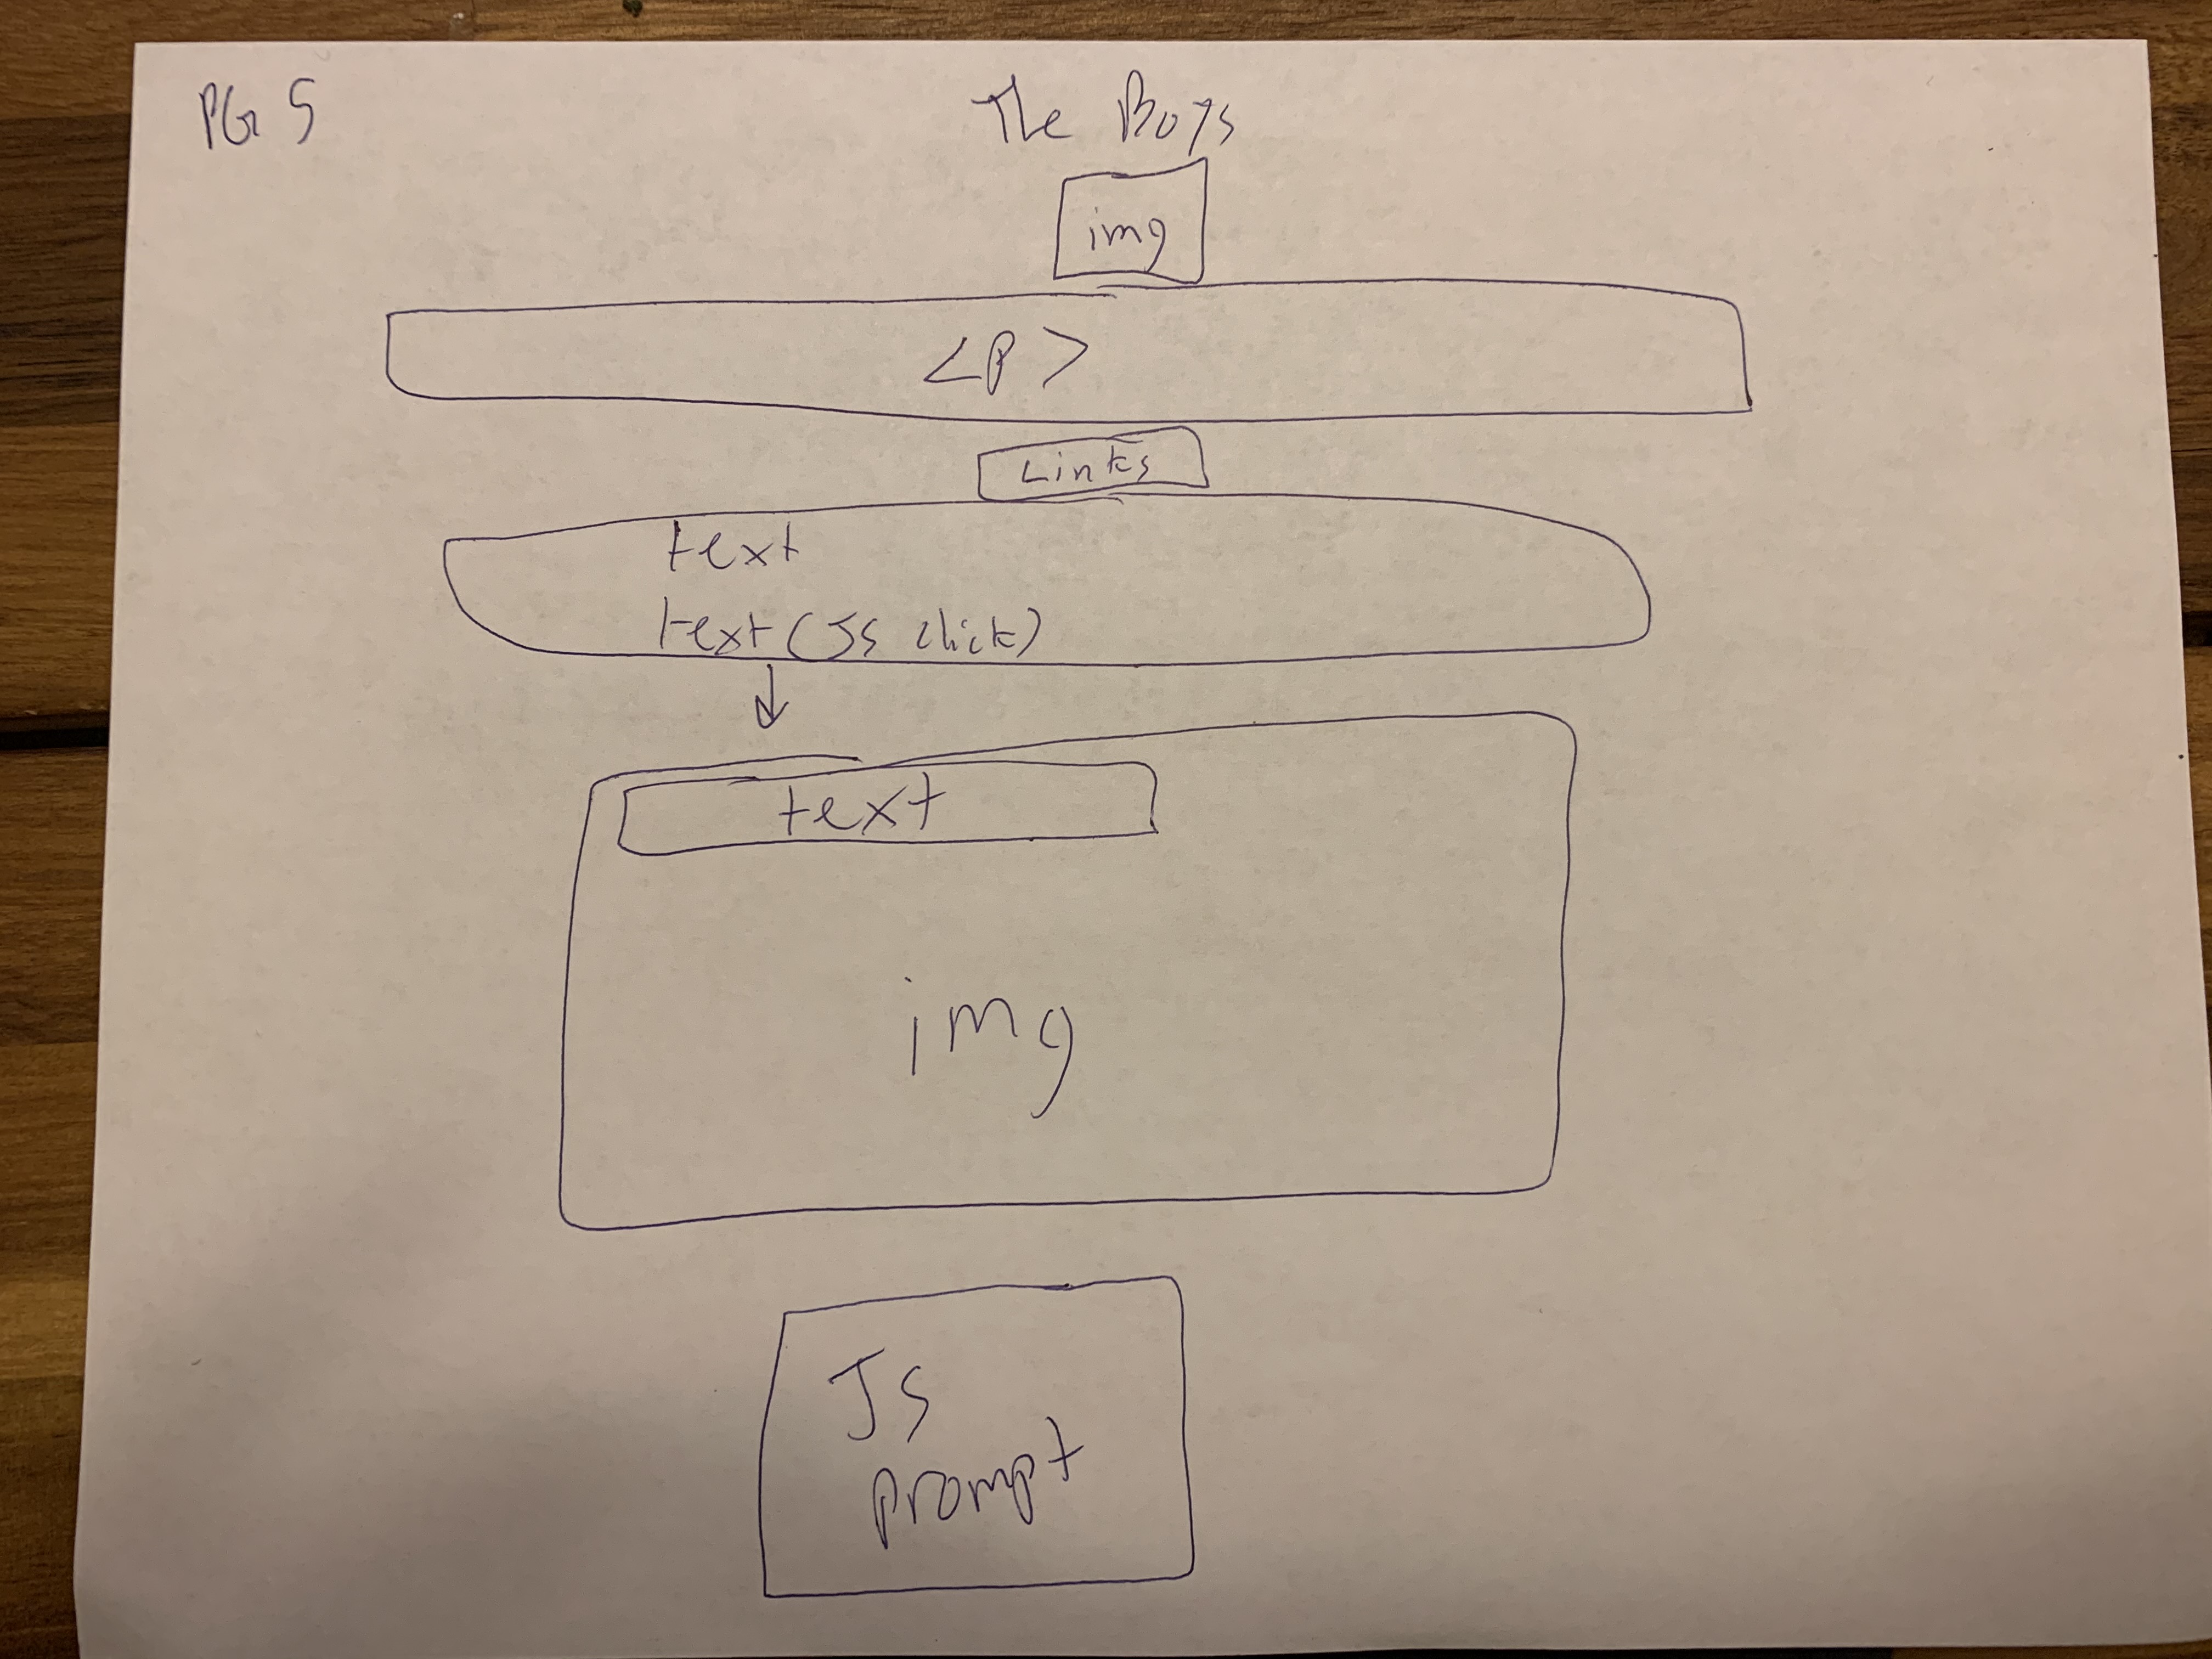 PG 5
The Boys
img
<P>
Links
text
text (JS click)
text
img
JS
prompt